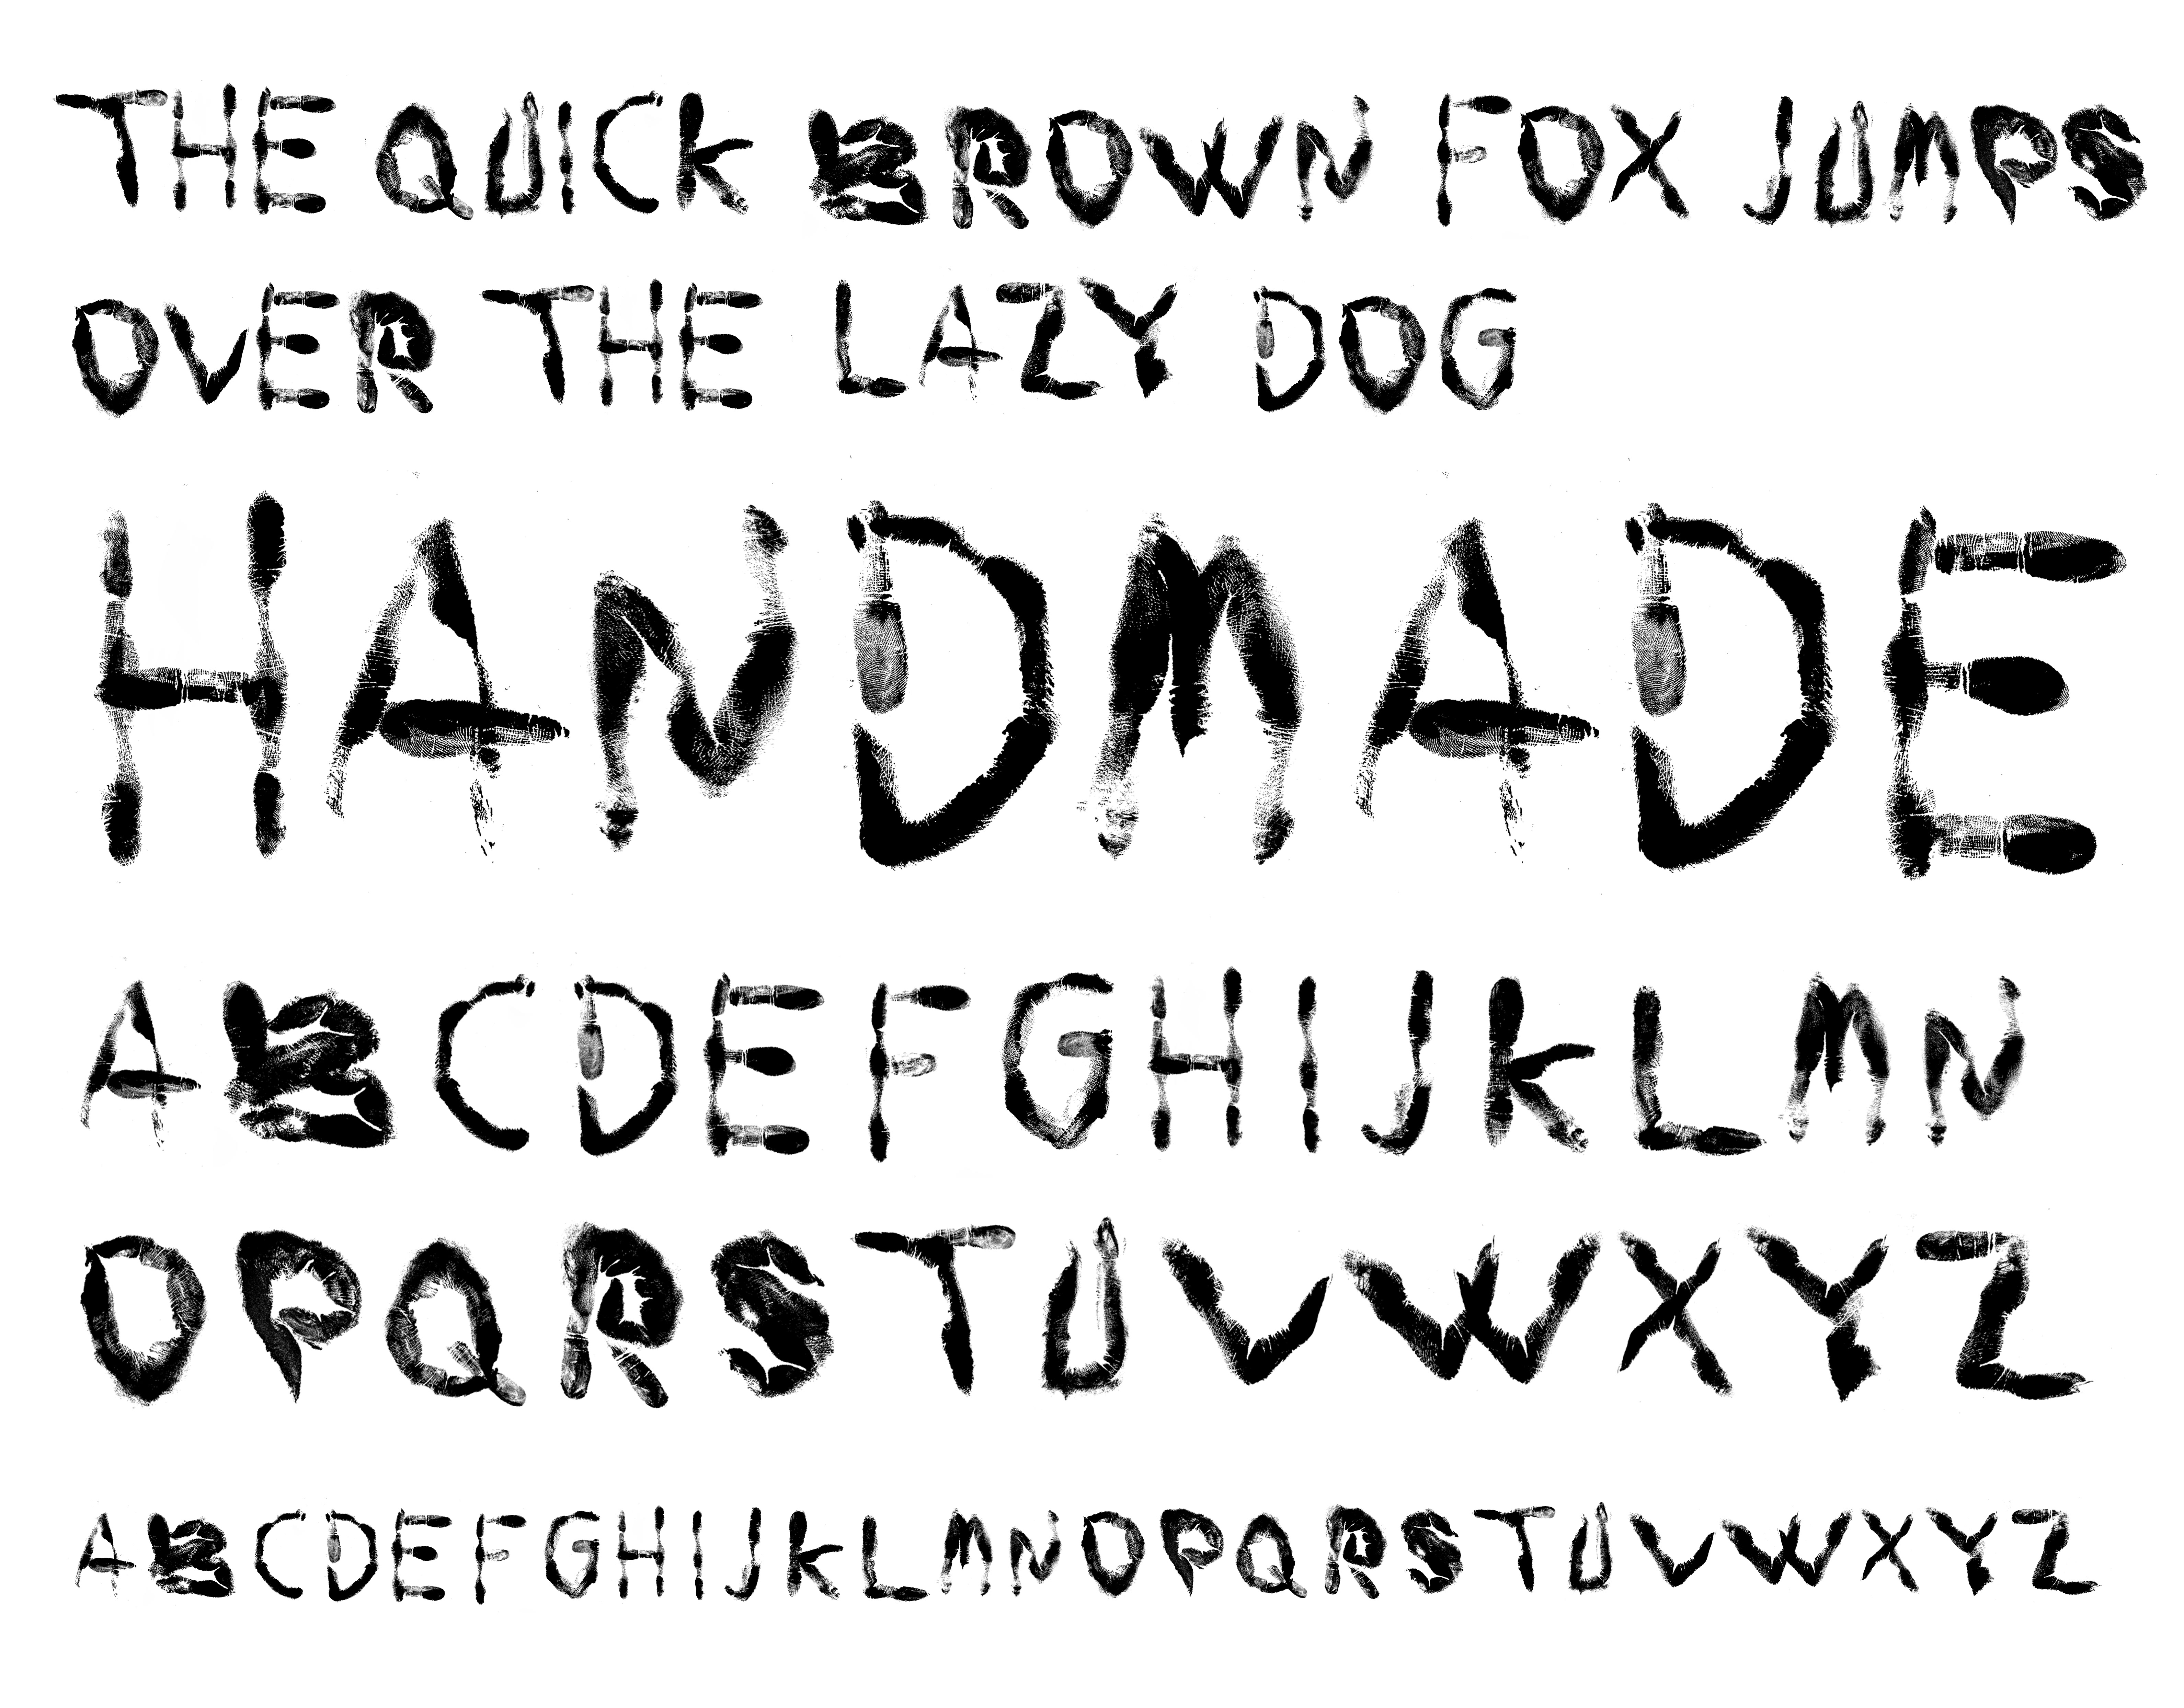 THE QUICK BROWN FOX JUMPS
OVER THE LAZY DOG
HANDMADE
ABCDEFGHIJKLMN
OPQRSTUVWXYZ
ABCDEFGHIJKLMNOPQRSTUVWXYZ